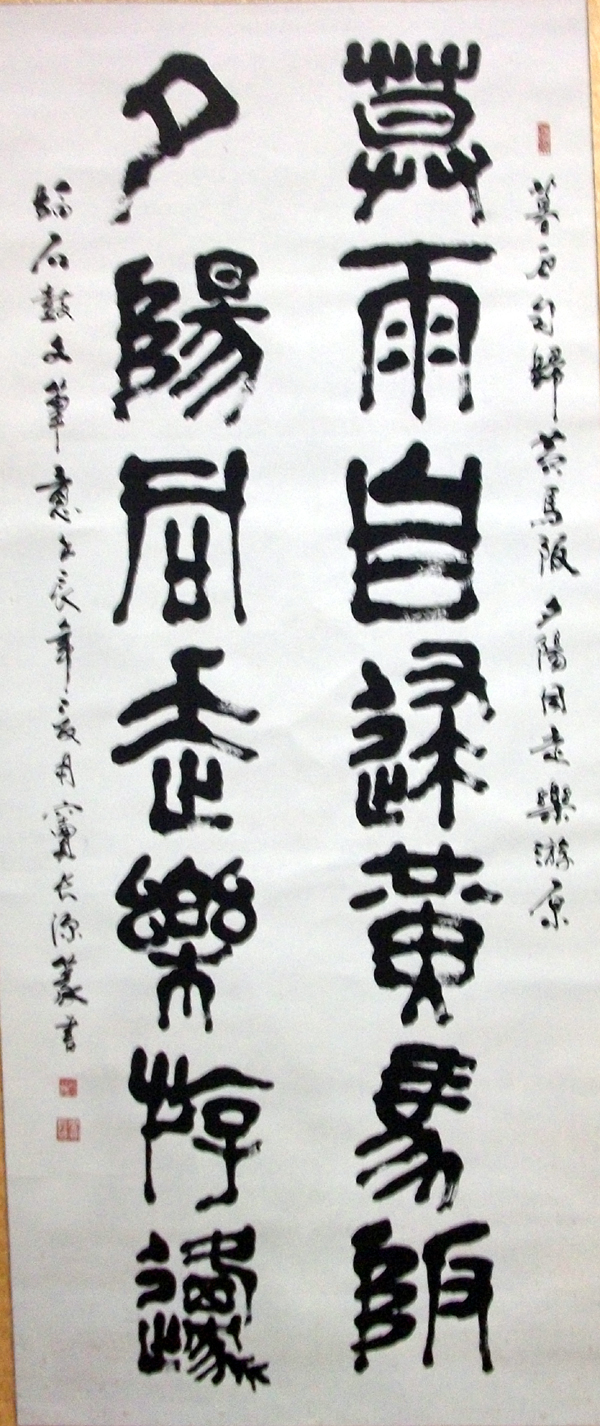 暮雨自歸黃馬阪夕陽同走樂游原
莫雨自歸黃馬阪
夕陽同走樂斿邍
石鼓文筆意壬辰年月長源篆書